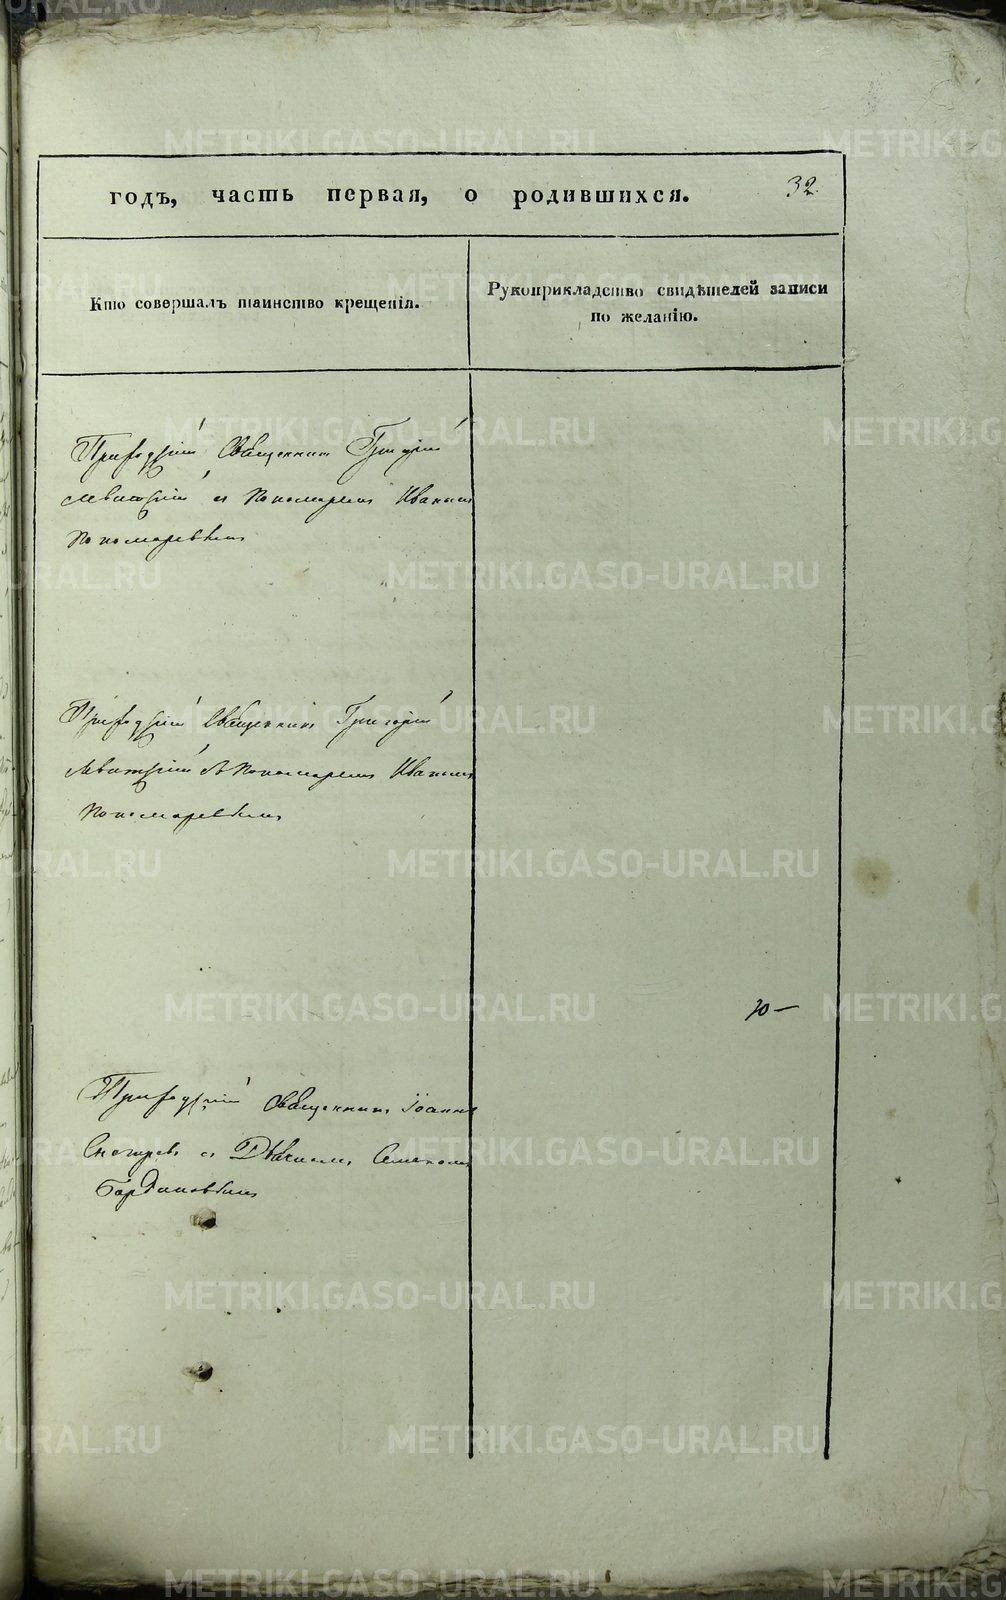 годъ, часть первая, о родившихся. 32.
Кто совершалъ таинство крещенія.
Рукоприкладство свидѣтелей записи
по желанію.
Приходскій Священникъ Григорій
Левитскій съ Пономаремъ Иваномъ
Пономаревымъ
Приходскій Священникъ Григорій
Левитскій съ Пономаремъ Иваномъ
Пономаревымъ
Приходскій Священникъ Іоаннъ
Снегиревъ съ Дьячкомъ Семеномъ
METRIKI.GASO-URAL.RU